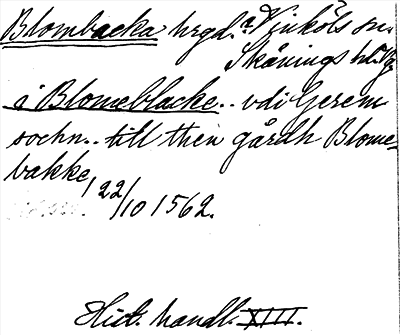 Blombacka hrgd. a Vinköls sn.
Skånings hd. Vg
i Blomeblacke.. vdi Gerem
sochn.. till then gårdh Blome-
bakke, 22/10 1562.
Hist. handl. XIII.